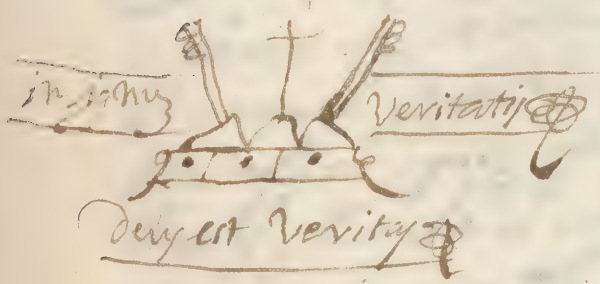 in signuz Veritatis
Deus est Veritas